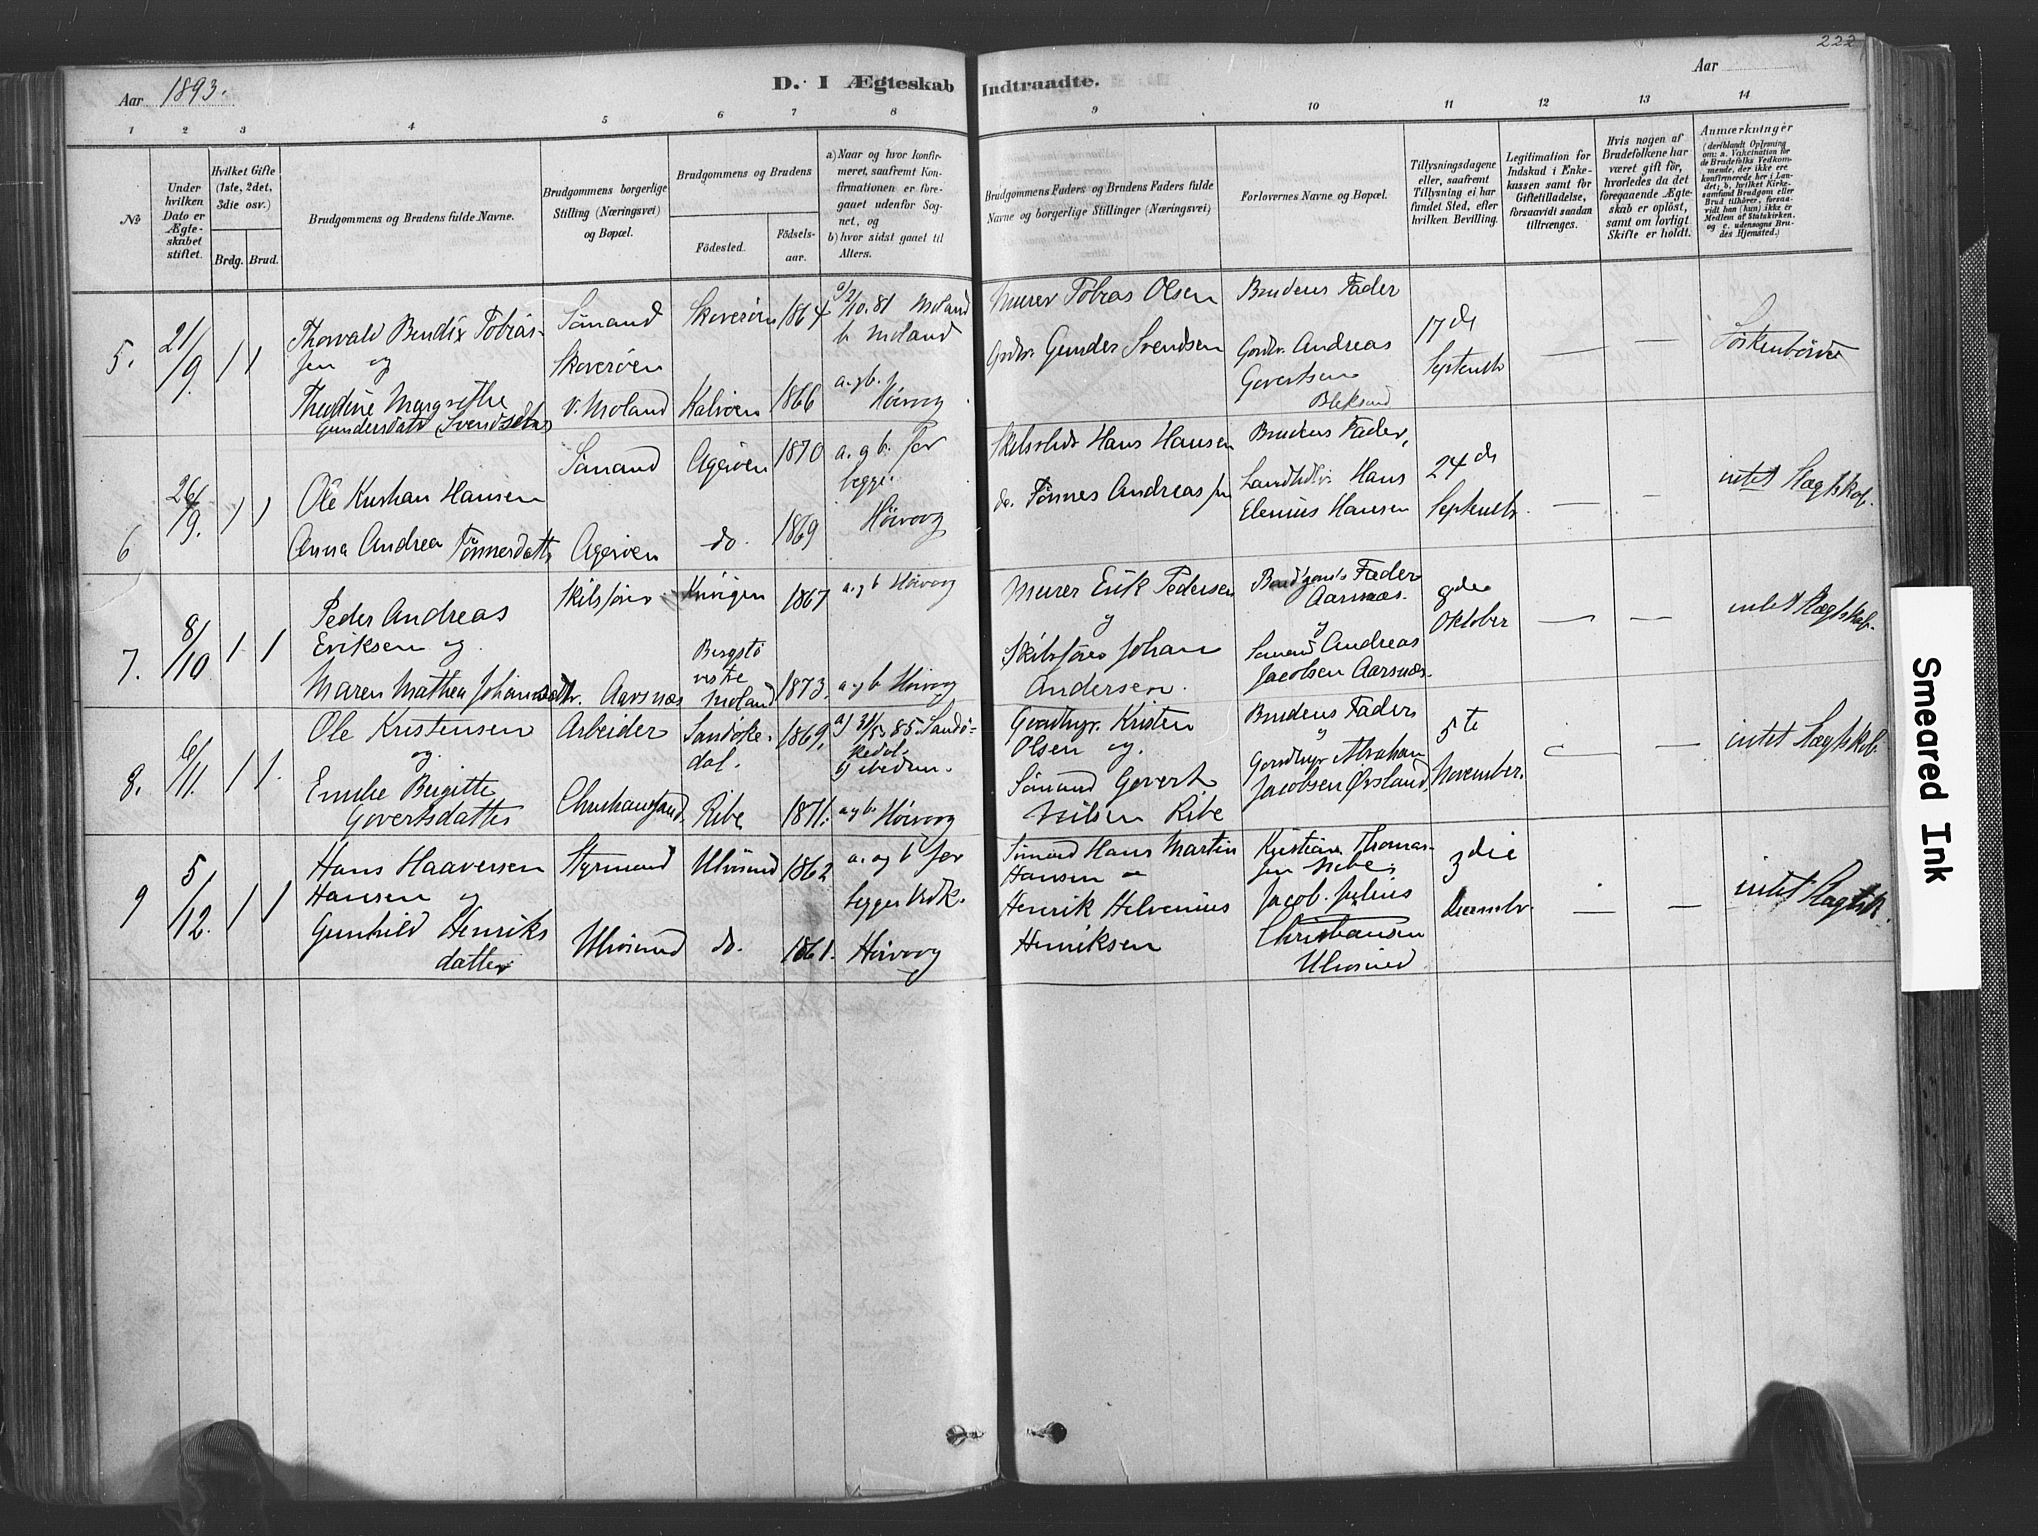 222
Aar 1893.
D. I Ægteskab Indtraadte.
Aar
1 2 3 4 5 6 7 8 9 10 11 12 13 14
No
Under hvilken Dato er Ægteskabet stiftet.
Hvilket Gifte (1ste, 2det, 3die osv.)
Brdg. Brud.
Brudgommens og Brudens fulde Navne.
Brudgommens borgerlige Stilling (Næringsvei) og Bopæl.
Brudgommens og Brudens
Födested.
Födsels-aar.
a) Naar og hvor konfirmeret, saafremt Konfirmationen er foregaaet udenför Sognet, og
b) hvor sidst gaaet til Alters.
Brudgommens Faders og Brudens Faders fulde Navne og borgerlige Stillinger (Næringsvei)
Forlovernes Navne og Bopæl.
Tillysningsdagene eller, saafremt Tillysning ei har fundet Sted, efter hvilken Bevilling.
Legitimation for Indskud i Enkekassen samt for Giftetilladelse, forsaavidt saadan tiltrænges.
Hvis nogen af Brudefolkene har været gift för, hvorledes da det foregaaende Ægteskab er oplöst, samt om lovligt Skifte er holdt.
Anmærkninger
(deriblandt Oplysning om: a. Vakcination for de Brudefolks Vedkommende, der ikke ere konfirmerede her i Landet; b, hvilket Kirkesamfund Brudgom eller Brud tilhörer, forsaavidt han (hun) ikke er Medlem af Statskirken. og c. udensogns Brudes Hjemsted.)
5. 21/9. 1 1
Thorvald Bendix Tobias-
sen og
Theodine Margrethe
Gundersdatr (Svendsdtr)
Sömand
Skoverøen
V. Moland
Skoverøen 1864
Kalvøen 1866
a 2/10. 81 Moland
b Moland
a. og b.
Høivog
Murer Tobias Olsen
Grdbr. Gunder Svendsen
Brudens Fader
Gordbr. Andreas
Govertsen
Bleksund
17 de
Septembr
Söskenbörn
6 26/9. 1 1
Ole Kristian Hansen
Anna Andrea Tönnesdatter
Sömand
Agerøen
Agerøen 1870
do. 1869
a. og b. for
begge
Høivog
Skibsbldr. Hans Hansen
do. Tönnes Andreassen
Brudens Fader,
Hans
Elenius Hansen
24 de
Septembr.
intet Slægtskab.
7. 8/10 1 1
Peder Andreas
Eriksen og
Maren Mathea Johannesdtr.
Skibsförer
Aarsnæs
1867
Bergstö
vestre
Moland 1873.
a. og b Høivog
a. og b Høivog
Murer Erik Pedersen
og
Skibsförer Johan
Andersen.
Brudgoms Fader
Aarsnæs.
og
Sömand Andreas
Jacobsen Aarsnæs
8de
Oktober
intet Slægtskab.
8. 6/11. 1 1.
Ole Kristensen
og
Emilie Birgitte
Govertsdatter
Arbeider
Christiansand
Sandöke-
dal. 1869.
Ribe 1871.
a) 31/5 85. Sandö-
kedal.
b) ibidem.
a. og b. Høivog
Gordbgr. Kristen
Olsen og
Sömand Govert
Nilsen Ribe
Brudens Fader
og
Gordbgr Abraham
Jacobsen Øvsland
5 te
November.
intet Slægtskab.
9 5/12. 1 1
Hans Haaversen
Hansen og
Gunhild Henriks
datter
Styrmand
Ulvösund
Ulvösund 1862
do. 1861.
a. og b for
begges Vedk.
Høivog
Sömand Hans Martin
Hansen og
Henrik Helvenius
Henriksen
Kristian Thomas-
sen Ribe,
Jacob. Julius
Christiansen
Ulvösund
3 die
Decembr.
intet Slægtsk.
Smeared Ink